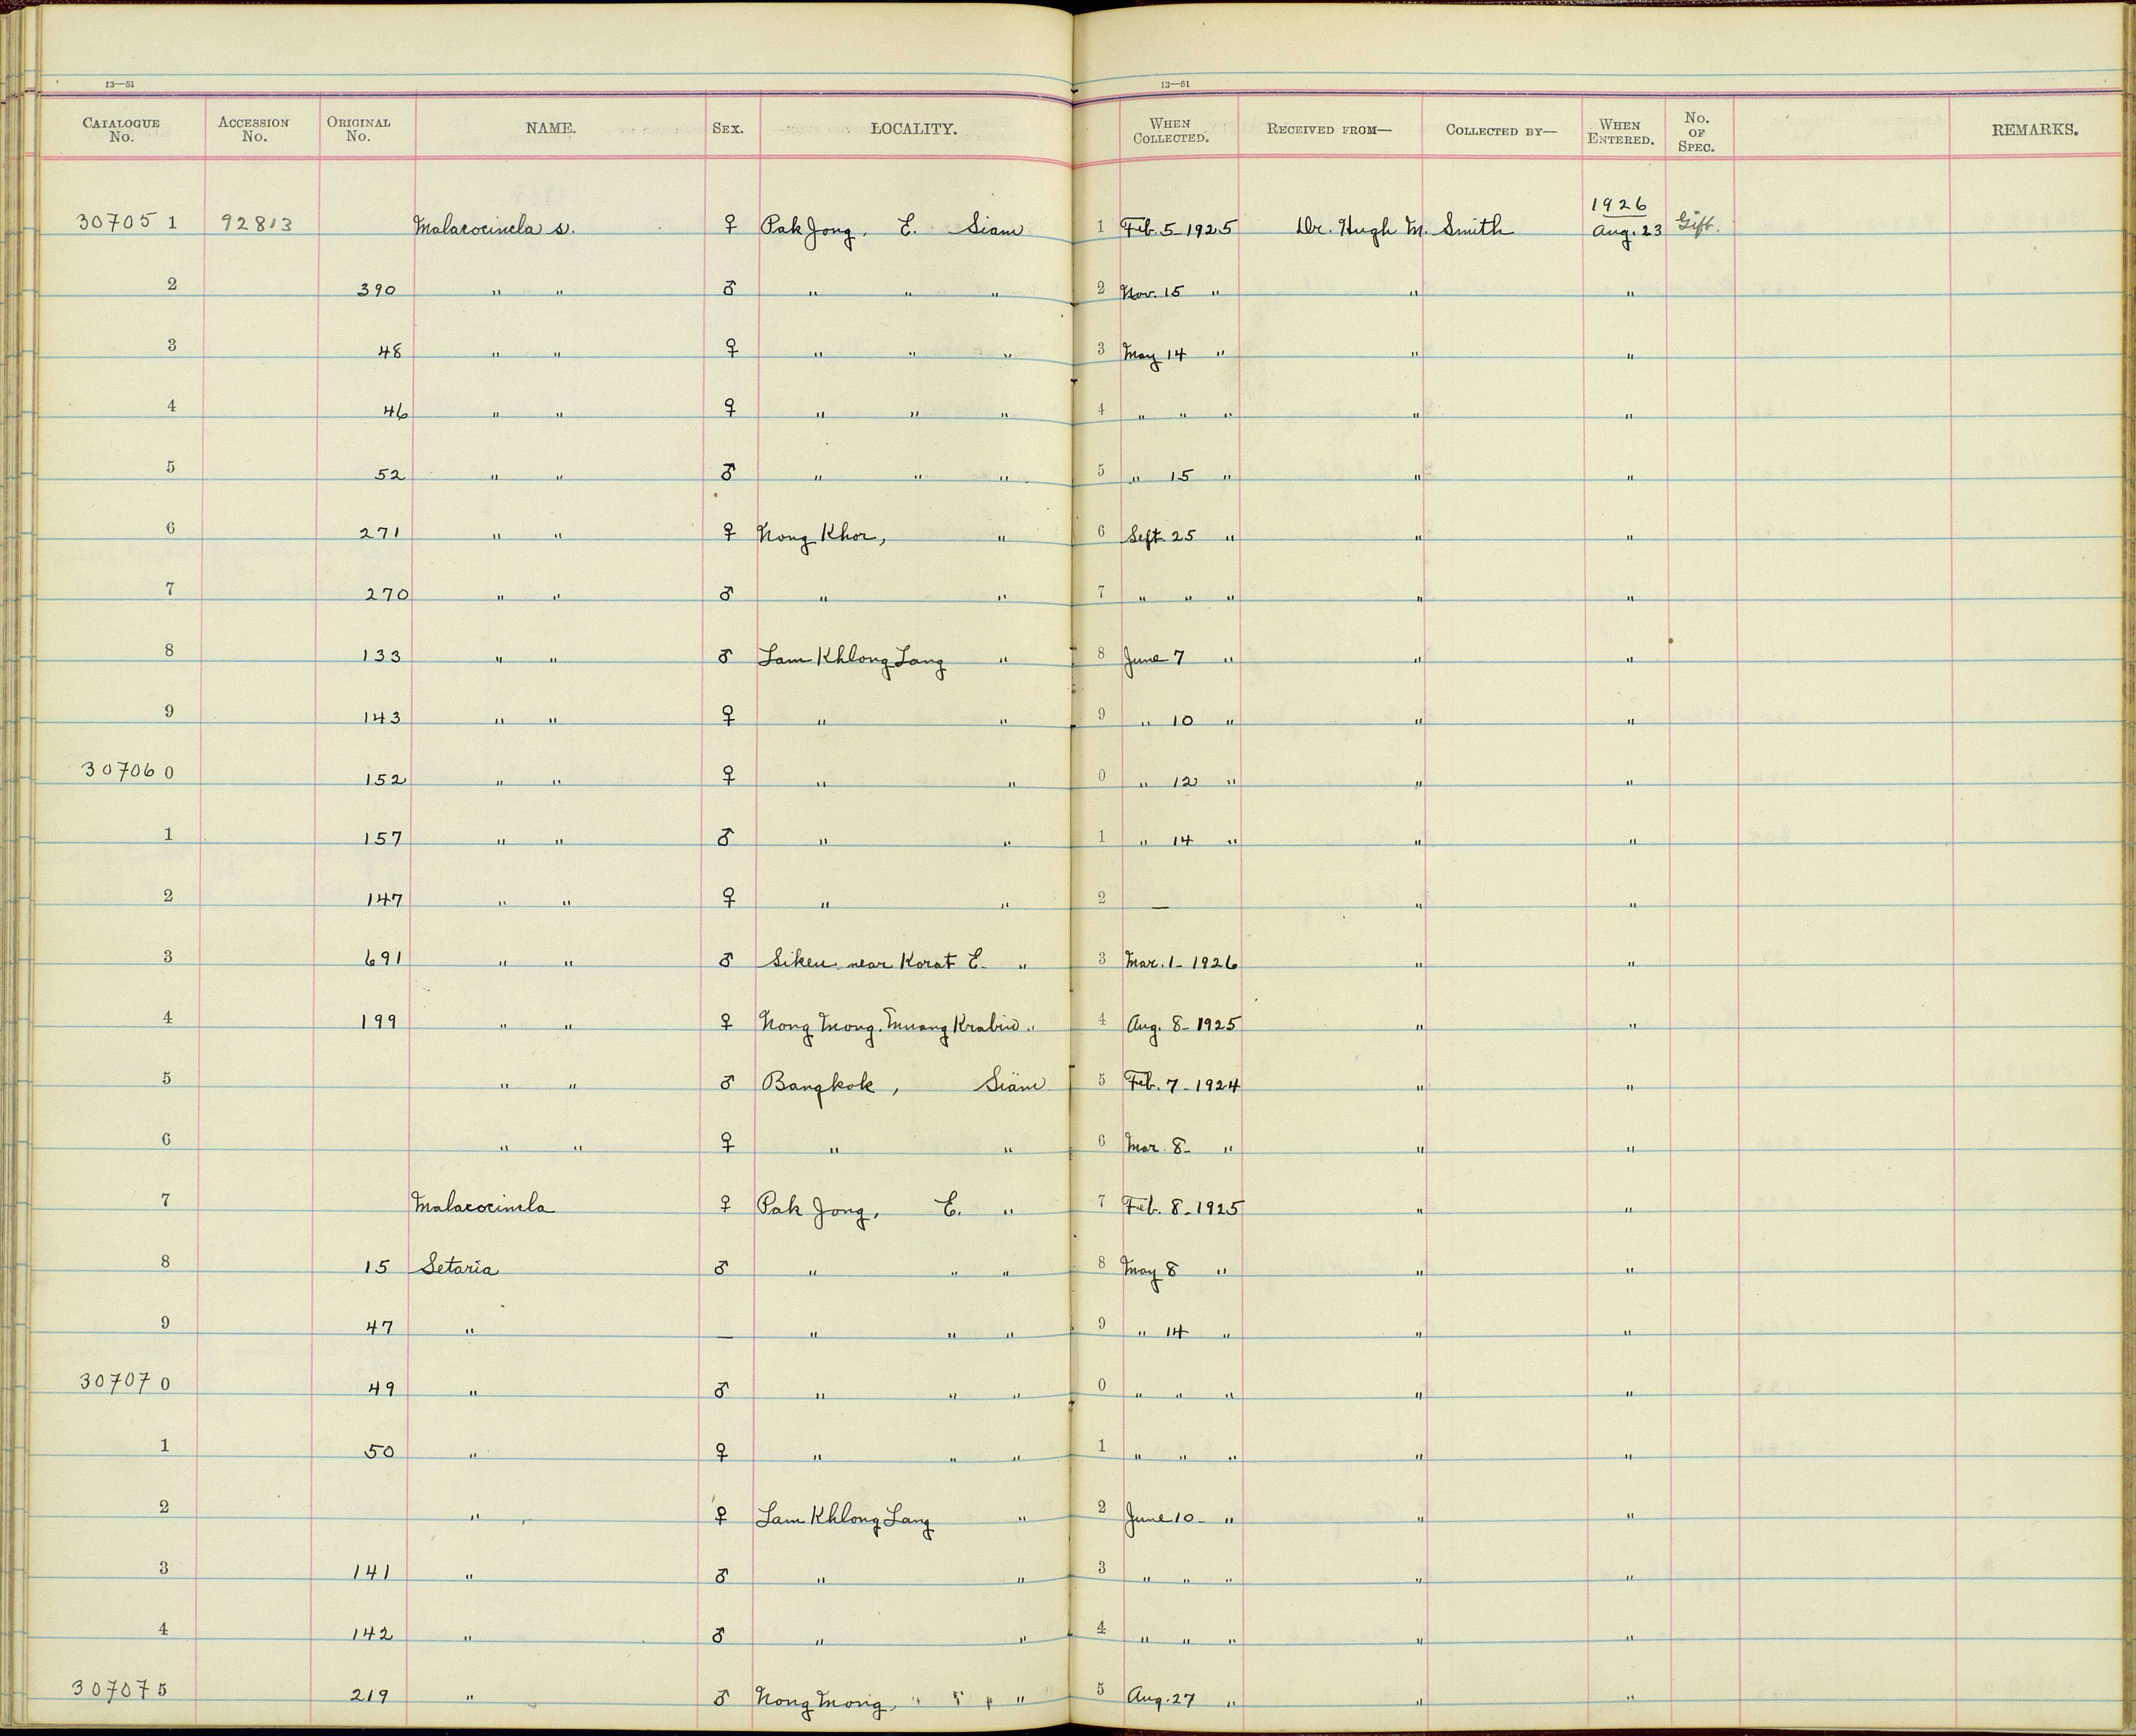 13—51 13—51
CATALOGUE No. ACCESSION No. ORIGINAL No. NAME. SEX. LOCALITY. WHEN COLLECTED. RECEIVED FROM— COLLECTED BY— WHEN ENTERED. No. OF SPEC. REMARKS.
307051 92813 Malacocincla s. ♀ Pak Jong, E. Siam 1 Feb. 5-1925 Dr. Hugh M. Smith 1926 Aug. 23 Gift.
2 390 " " ♂ " " " 2 Nov. 15 " " "
3 48 " " ♀ " " " 3 May 14 " " "
4 46 " " ♀ " " " 4 " " " " "
5 52 " " ♂ " " " 5 " 15 " " "
6 271 " " ♀ Nong Khor, " 6 Sept. 25 " " "
7 270 " " ♂ " " 7 " " " " "
8 133 " " ♂ Lam Khlong Lang " 8 June 7 " " "
9 143 " " ♀ " " 9 " 10 " " "
307060 152 " " ♀ " " 0 " 12 " " "
1 157 " " ♂ " " 1 " 14 " " "
2 147 " " ♀ " " 2 — " "
3 691 " " ♂ Sikeu, near Korat E. " 3 Mar. 1-1926 " "
4 199 " " ♀ Nong Mong, Muang Krabin " 4 Aug. 8-1925 " "
5 " " ♂ Bangkok, Siam 5 Feb. 7-1924 " "
6 " " ♀ " " 6 Mar. 8- " " "
7 Malacocincla ♀ Pak Jong, E. " 7 Feb. 8-1925 " "
8 15 Setaria ♂ " " " 8 May 8 " " "
9 47 " — " " " 9 " 14 " " "
307070 49 " ♂ " " " 0 " " " " "
1 50 " ♀ " " " 1 " " " " "
2 " ♀ Lam Khlong Lang " 2 June 10- " " "
3 141 " ♂ " " 3 " " " " "
4 142 " ♂ " " 4 " " " " "
307075 219 " ♂ Nong Mong, " " 5 Aug. 27 " " "